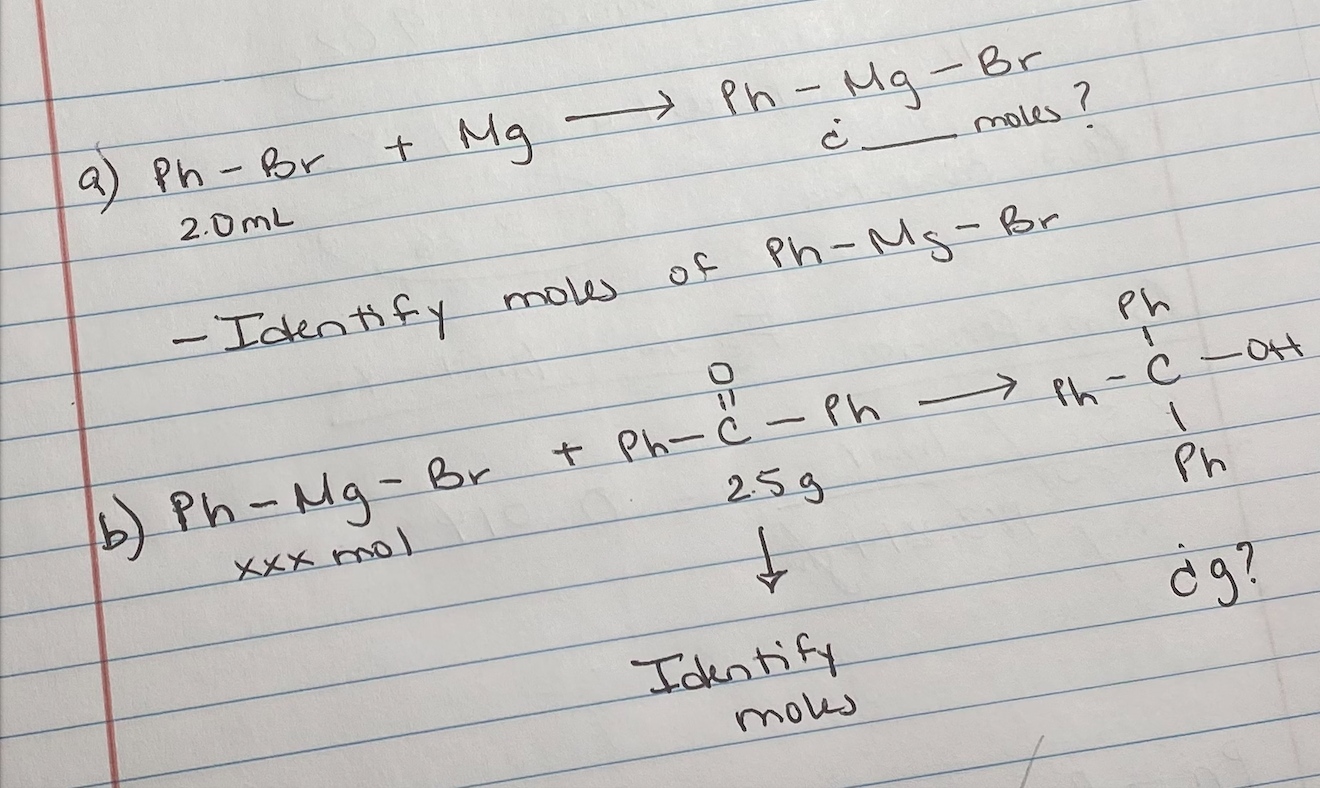 a) Ph - Br + Mg ⟶ Ph - Mg - Br
2.0mL ¿ ___ moles?
- Identify moles of Ph - Mg - Br
Ph
O
b) Ph - Mg - Br + Ph - C - Ph ⟶ Ph - C - OH
Ph
xxx mol 2.5g
¿g?
Identify
moles